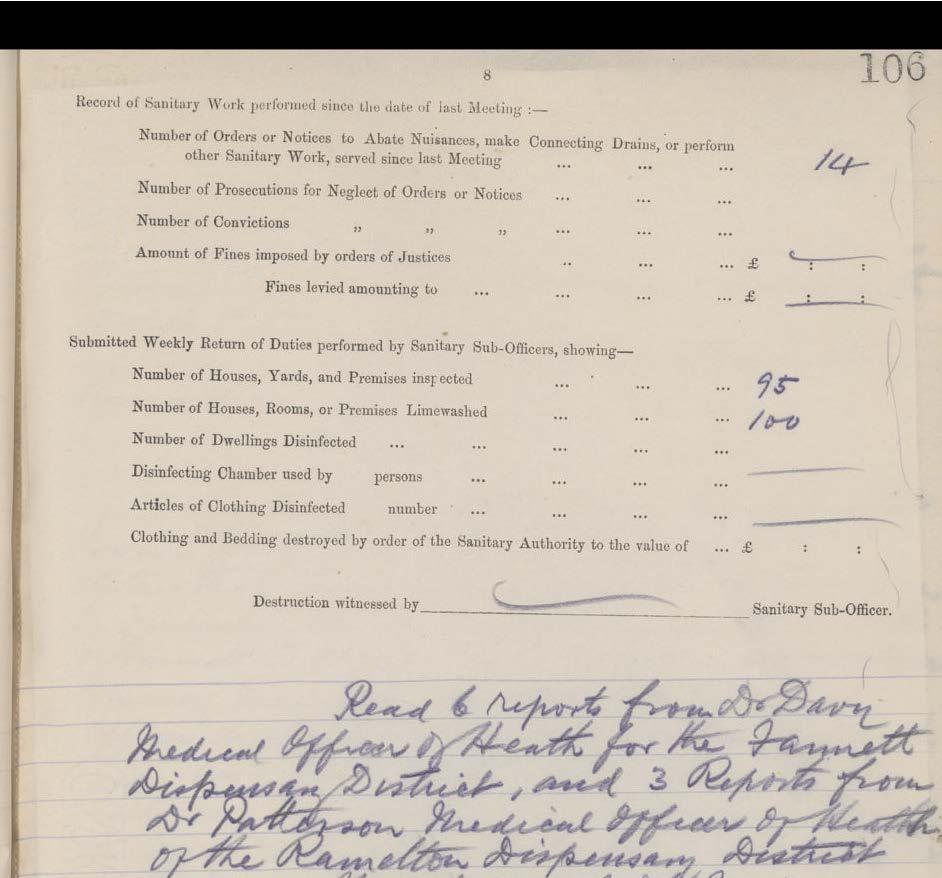 106
8
Record of Sanitary Work performed since the date of last Meeting :—
Number of Orders or Notices to Abate Nuisances, make Connecting Drains, or perform
other Sanitary Work, served since last Meeting ... ... ... 14
Number of Prosecutions for Neglect of Orders or Notices ... ... ...
Number of Convictions ,, ,, ,, ... ... ...
Amount of Fines imposed by orders of Justices .. ... ... £ : :
Fines levied amounting to ... ... ... ... £ : :
Submitted Weekly Return of Duties performed by Sanitary Sub-Officers, showing—
Number of Houses, Yards, and Premises inspected ... ... ... 95
Number of Houses, Rooms, or Premises Limewashed ... ... ... 100
Number of Dwellings Disinfected ... ... ... ... ...
Disinfecting Chamber used by persons ... ... ... ...
Articles of Clothing Disinfected number ... ... ... ...
Clothing and Bedding destroyed by order of the Sanitary Authority to the value of ... £ : :
Destruction witnessed by Sanitary Sub-Officer.
Read 6 reports from Dr Davy
Medical Officer of Heath for the Fannett
Dispensary District, and 3 Reports from
Dr Patterson Medical Officer of Health
of the Ramelton Dispensary District